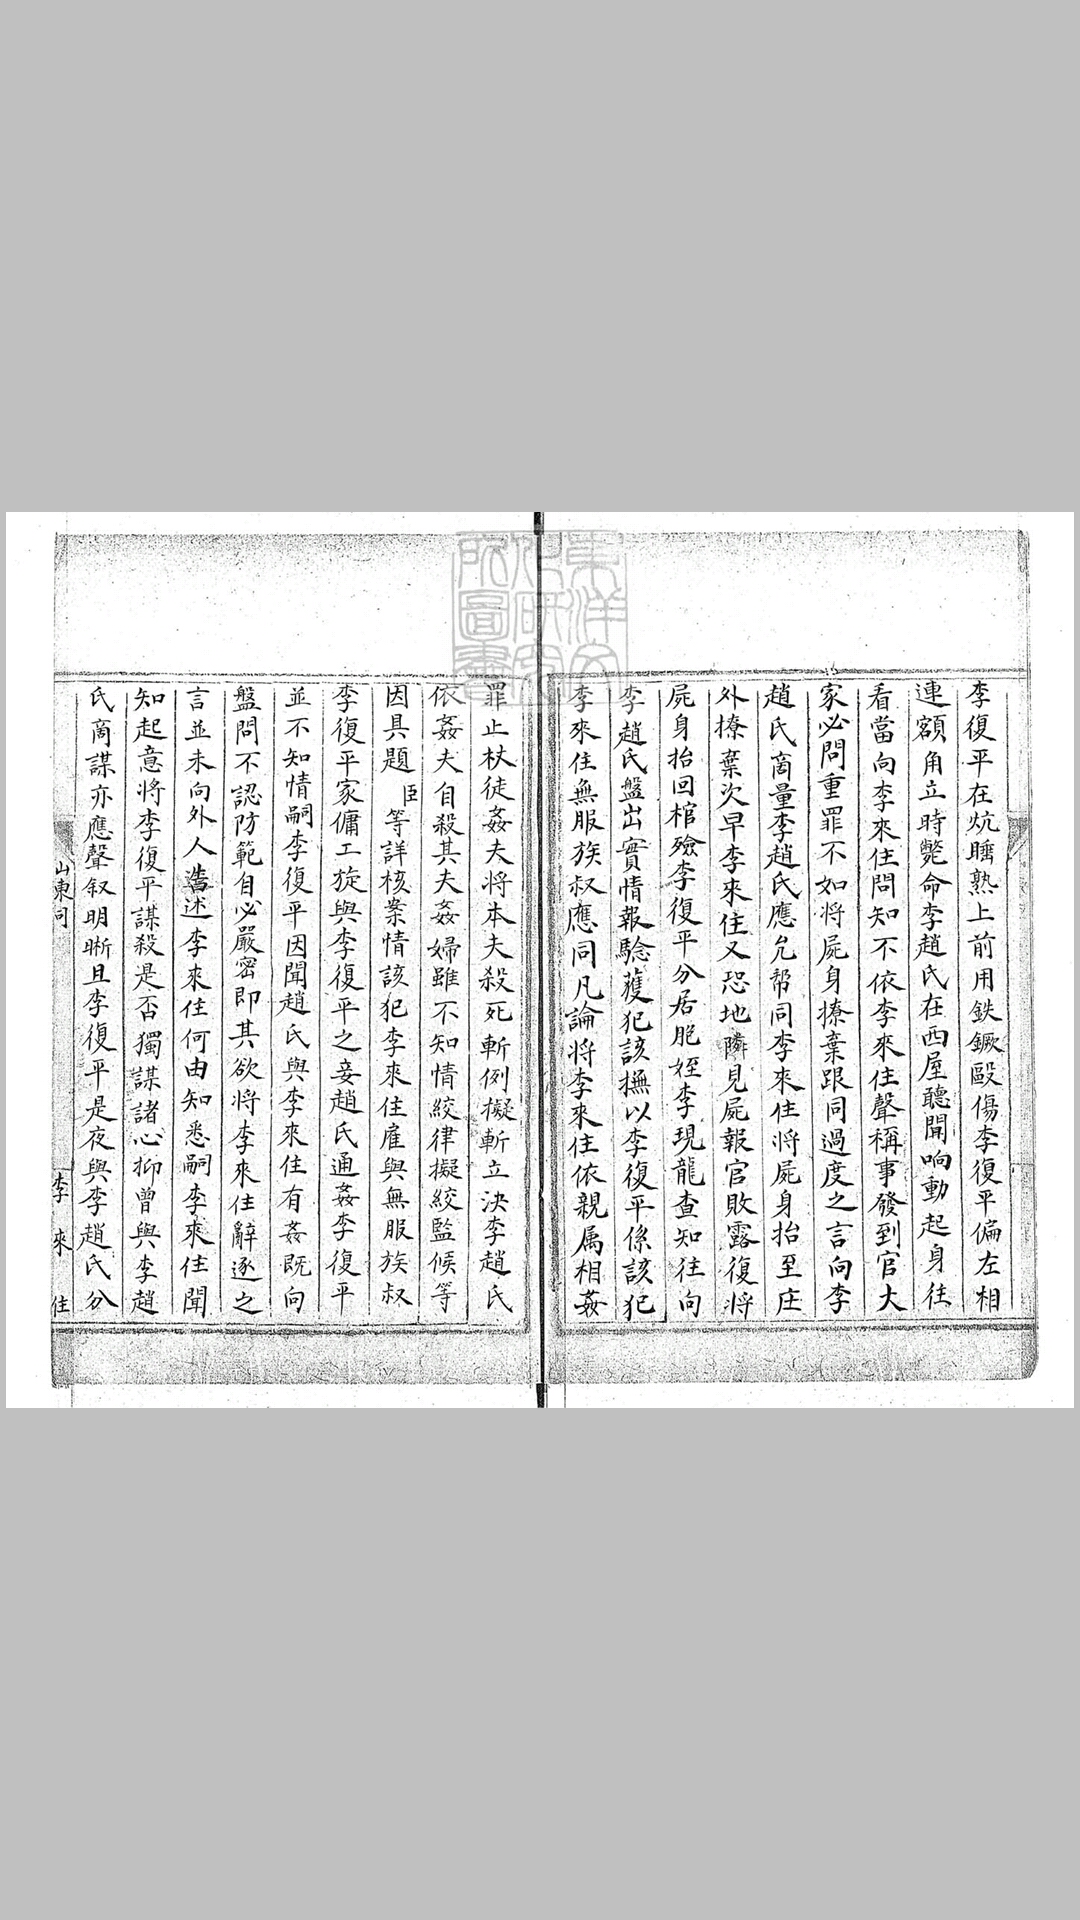 李復平在炕睡熟上前用鉄鐝毆傷李復平偏左相
連額角立時斃命李趙氏在西屋聽聞响動起身往
看當向李來住問知不依李來住聲稱事發到官大
家必問重罪不如將屍身撩棄跟同過度之言向李
趙氏商量李趙氏應允帮同李來住將屍身抬至庄
外撩棄次早李來住又恐地隣見屍報官敗露復將
屍身抬回棺殮李復平分居胞姪李現龍查知往向
李趙氏盤出實情報騐獲犯該撫以李復平係該犯
李來住無服族叔應同凡論將李來住依親属相姦
罪止杖徒姦夫將本夫殺死斬例擬斬立決李趙氏
依姦夫自殺其夫姦婦雖不知情絞律擬絞監候等
因具題臣等詳核案情該犯李來住雇與無服族叔
李復平家傭工旋與李復平之妾趙氏通姦李復平
並不知情嗣李復平因聞趙氏與李來住有姦既向
盤問不認防範自必嚴密即其欲將李來住辭逐之
言並未向外人告述李來住何由知悉嗣李來住聞
知起意將李復平謀殺是否獨謀諸心抑曾與李趙
氏商謀亦應聲叙明晰且李復平是夜與李趙氏分
山東司
李來住